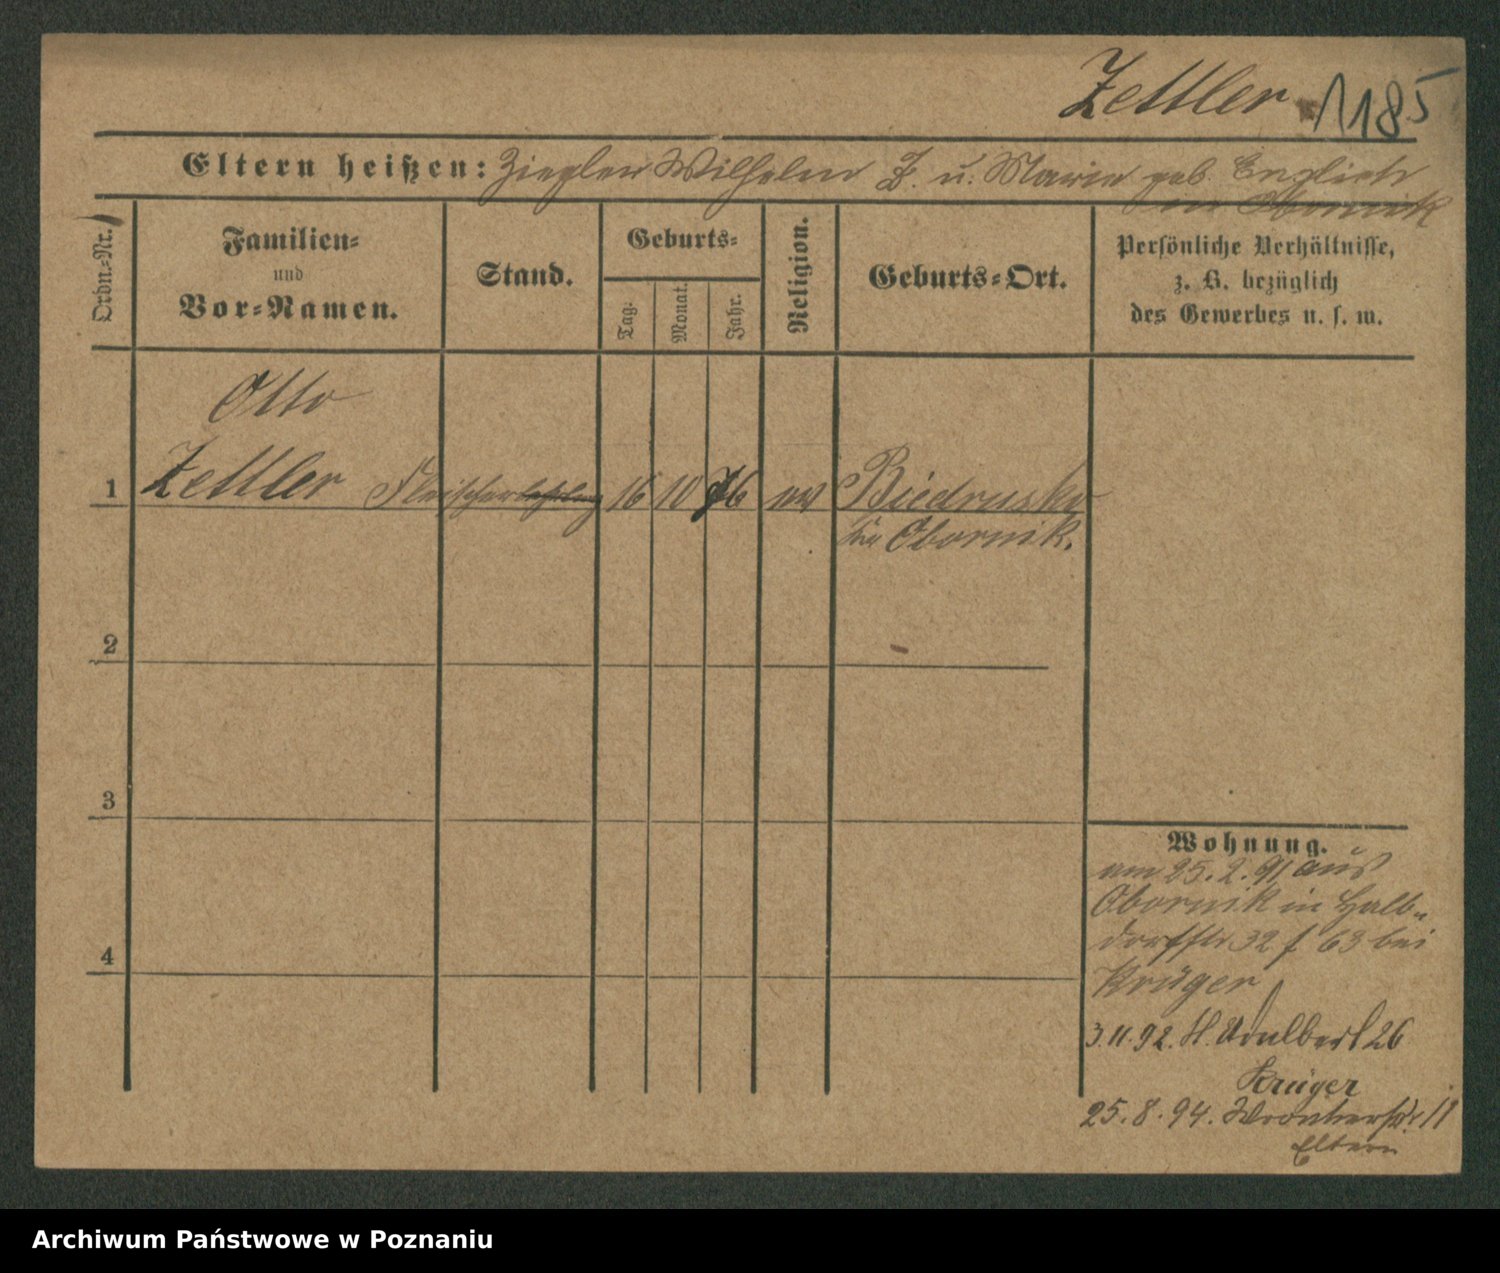 Zettler 1185
Eltern heißen: Ziegler Wilhelm Z. u. Marie geb. Englich
in Obornik
Ordn.-Nr.
Familien-
und
Vor-Namen.
Stand.
Geburts-
Tag.
Monat.
Jahr.
Religion.
Geburts-Ort.
Persönliche Verhältnisse,
z. B. bezüglich
des Gewerbes u. s. w.
Otto
1 Zettler Fleischerlehrling 16 10 76 ev Biedrusko
Obornik.
2
3
4
Wohnung.
am 25. 2. 91 aus
Obornik in Halb-
dorfstr 32 f 63 bei
Krüger
3.11.92. St. Adalbert 26
Krüger
25. 8. 94. Wronkerstr. 11
Eltern
Archiwum Państwowe w Poznaniu